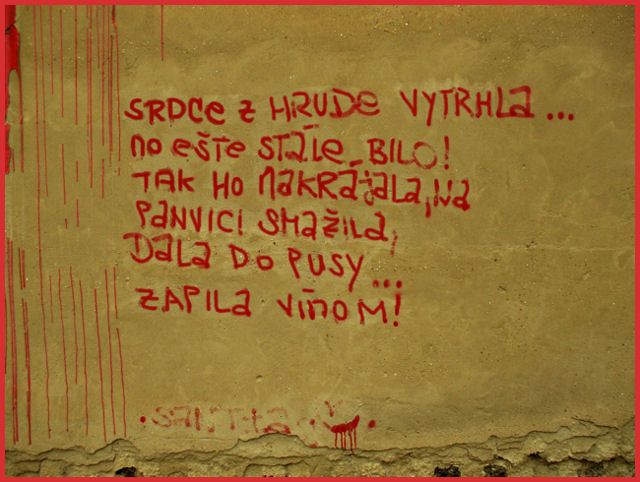 SRDCe z HRUDE VYTRHLa...
no eštE STálE BILO!
TAK HO NaKRájaLa, Na
PaNVICI SMAžILa,
DaLa DO PUSY...
ZAPILa VíNOM!